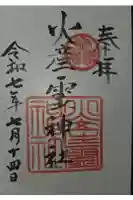 奉拝
火産霊神社
令和七年七月十四日